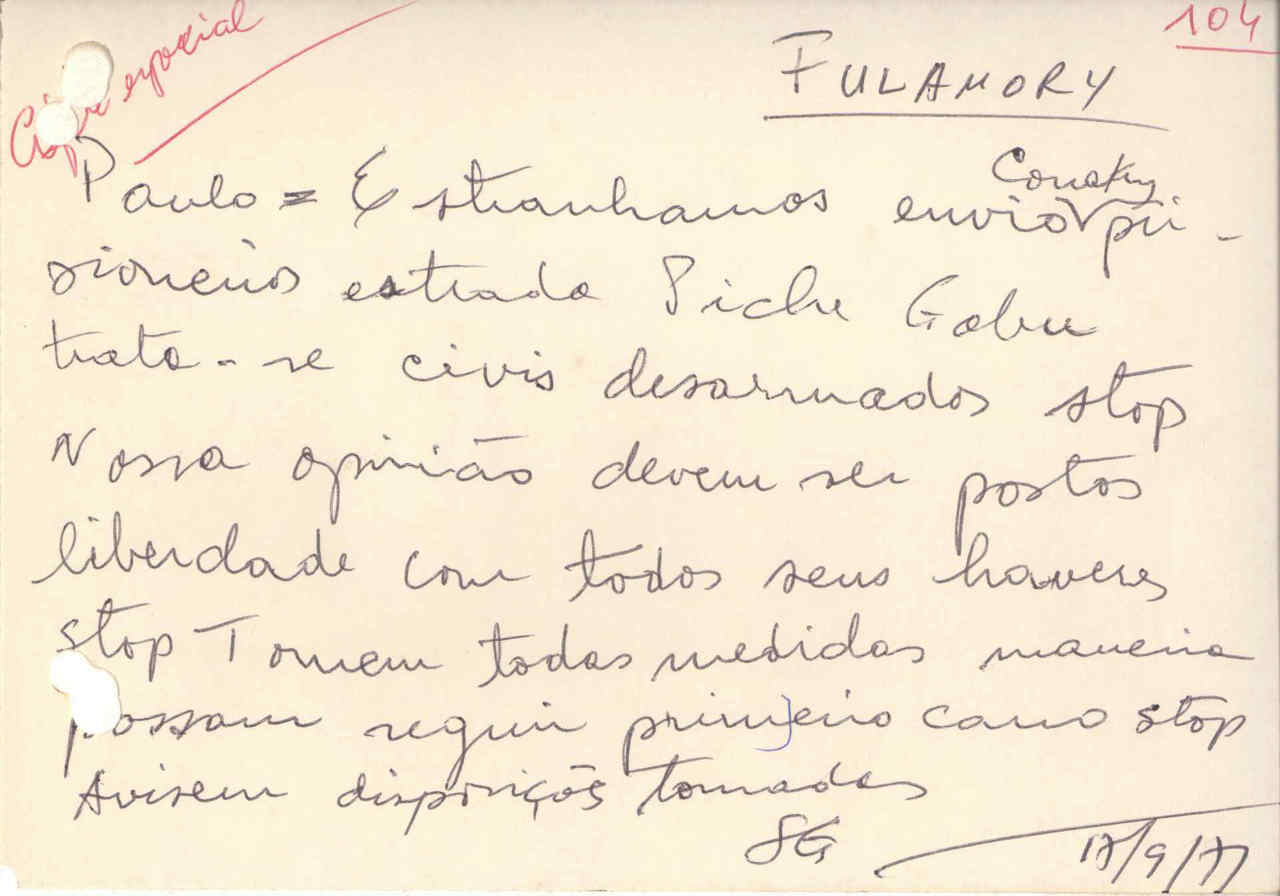 104
especial
FULAMORY
Conakry
Paulo = Estranhamos envio pri-
sioneiros estrada Piche Gabu
trata-se civis desarmados stop
Nossa opinião devem ser postos
liberdade com todos seus haveres
stop Tomem todas medidas maneira
possam seguir primeiro carro stop
Avisem disposições tomadas
SG 17/9/71